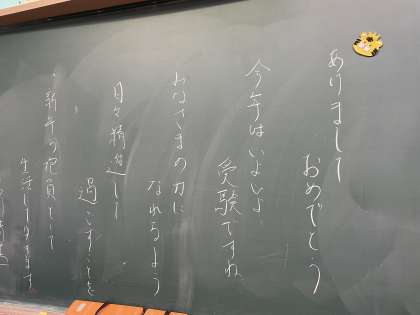 ありまして
おめでとう
今年はいよいよ
受験ですね
みなさまの力に
なれるよう
日々精進して
過ごすことを
新年の抱負として
生活して